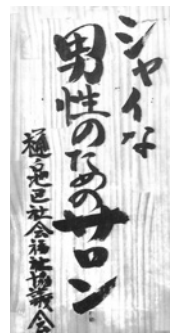 シャイな
男性のための
サロン
樋之池社会福祉協議会